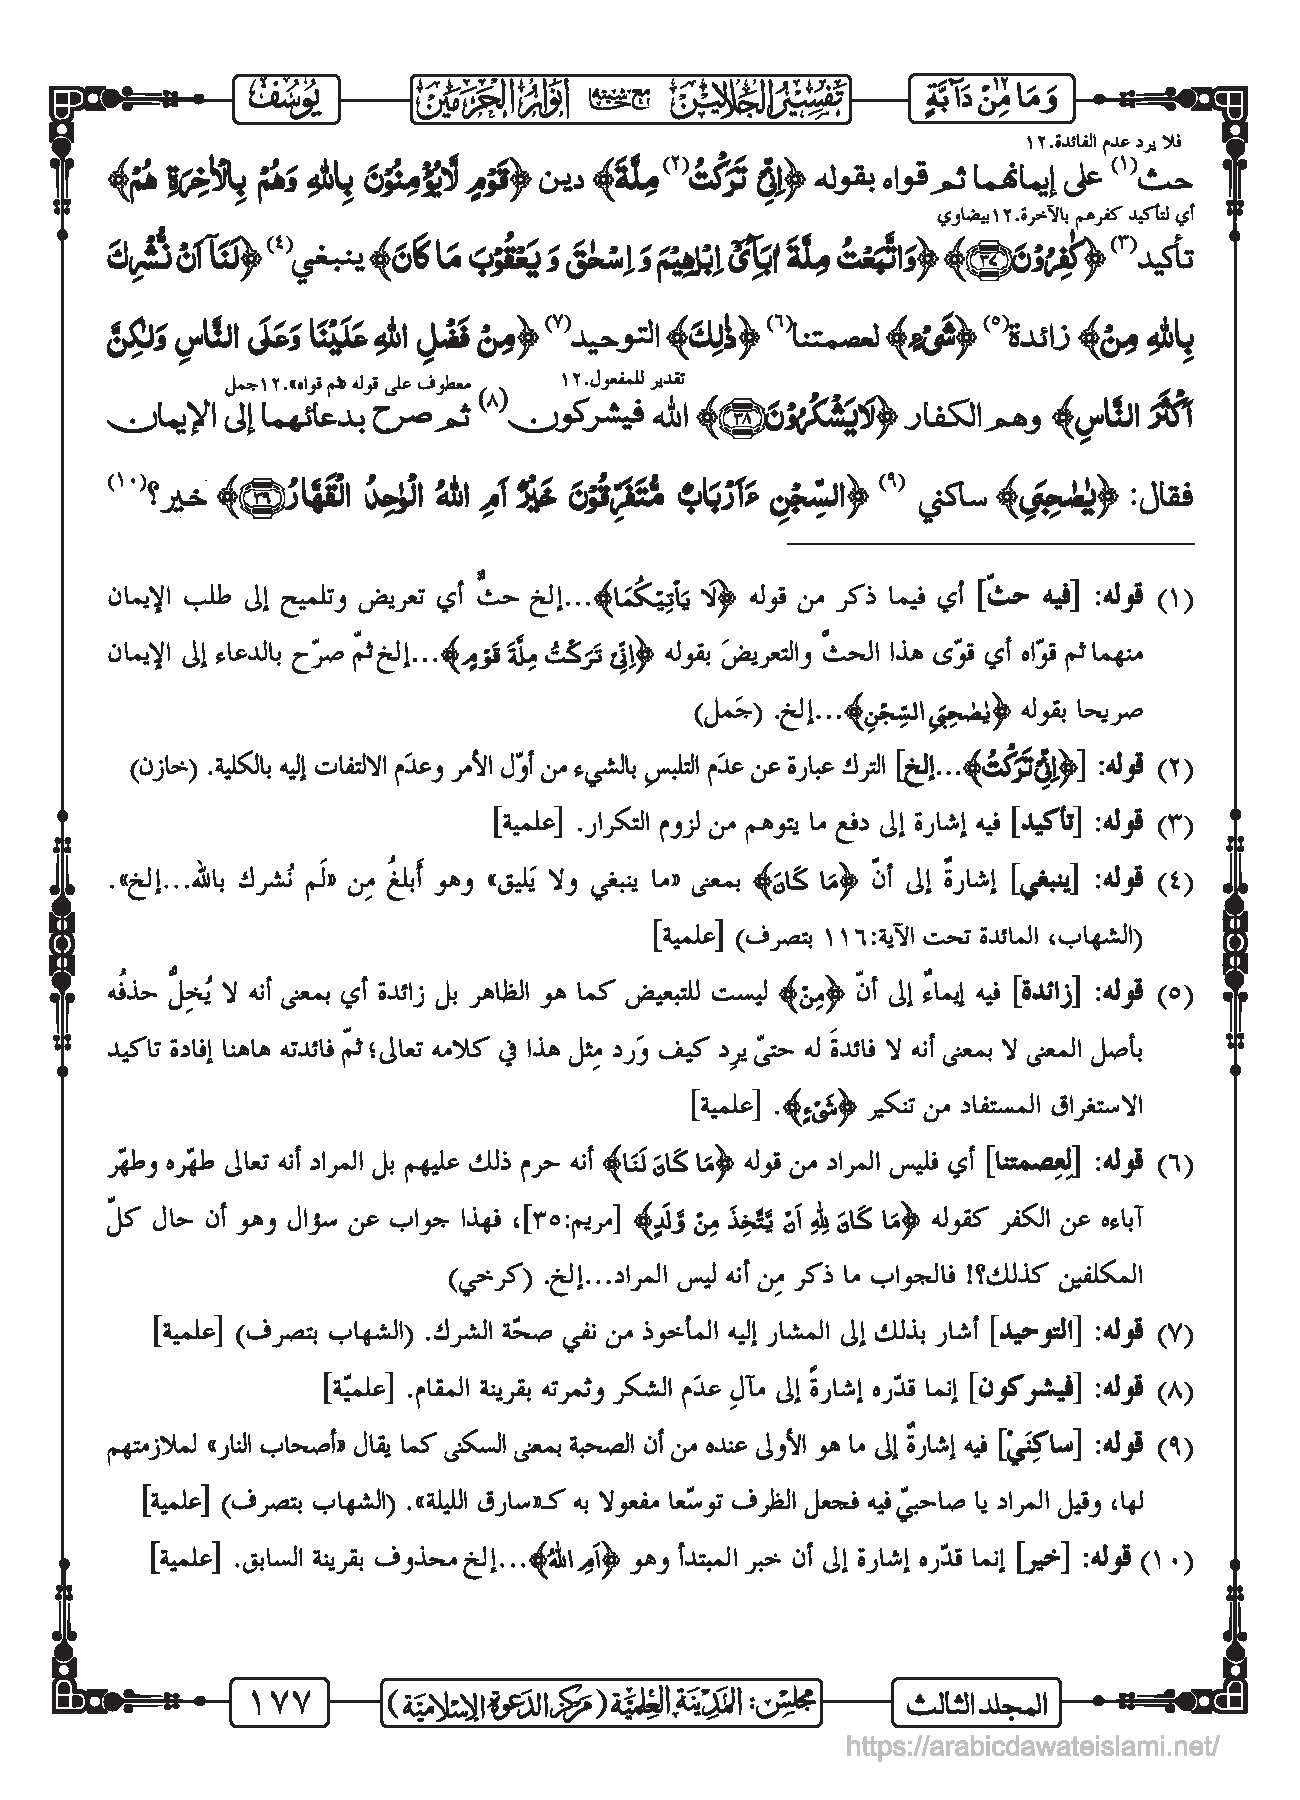 وَمَا مِنْ دَآبَّةٍ ١٢
تفسير الجلالين مع حاشيته أنوار الحرمين
يُوسُف
فلا يرد عدم الفائدة.١٢
حث(١) على إيمانهما ثم قواه بقوله ﴿اِنِّیْ تَرَكْتُ(٢) مِلَّةَ﴾ دين ﴿قَوْمٍ لَّا یُؤْمِنُوْنَ بِاللّٰهِ وَهُمْ بِالْاٰخِرَةِ هُمْ﴾
أي لتأكيد كفرهم بالآخرة.١٢بيضاوي
تأكيد(٣) ﴿كٰفِرُوْنَ ٣٧﴾ ﴿وَاتَّبَعْتُ مِلَّةَ اٰبَآءِیْۤ اِبْرٰهِیْمَ وَ اِسْحٰقَ وَ یَعْقُوْبَ مَا كَانَ﴾ ينبغي(٤) ﴿لَنَاۤ اَنْ نُّشْرِكَ
بِاللّٰهِ مِنْ﴾ زائدة(٥) ﴿شَیْءٍ﴾ لعصمتنا(٦) ﴿ذٰلِكَ﴾ التوحيد(٧) ﴿مِنْ فَضْلِ اللّٰهِ عَلَیْنَا وَعَلَى النَّاسِ وَلٰكِنَّ
تقدير للمفعول.١٢ معطوف على قوله «ثم قواه».١٢جمل
اَكْثَرَ النَّاسِ﴾ وهم الكفار ﴿لَا یَشْكُرُوْنَ ٣٨﴾ الله فيشركون(٨) ثم صرح بدعائهما إلى الإيمان
فقال: ﴿یٰصَاحِبَیِ﴾ ساكني (٩) ﴿السِّجْنِ ءَاَرْبَابٌ مُّتَفَرِّقُوْنَ خَیْرٌ اَمِ اللّٰهُ الْوَاحِدُ الْقَهَّارُ ٣٩﴾ خير؟(١٠)
(١) قوله: [فيه حثّ] أي فيما ذكر من قوله ﴿لَا یَاْتِیْكُمَا﴾...إلخ حثٌّ أي تعريض وتلميح إلى طلب الإيمان
منهما ثم قوّاه أي قوّى هذا الحثَّ والتعريضَ بقوله ﴿اِنِّیْ تَرَكْتُ مِلَّةَ قَوْمٍ﴾...إلخ ثمّ صرّح بالدعاء إلى الإيمان
صريحا بقوله ﴿یٰصَاحِبَیِ السِّجْنِ﴾...إلخ. (جَمل)
(٢) قوله: [﴿اِنِّیْ تَرَكْتُ﴾...إلخ] الترك عبارة عن عدَم التلبسِ بالشيء من أوّل الأمر وعدَم الالتفات إليه بالكلية. (خازن)
(٣) قوله: [تأكيد] فيه إشارة إلى دفع ما يتوهم من لزوم التكرار. [علمية]
(٤) قوله: [ينبغي] إشارةٌ إلى أنّ ﴿مَا كَانَ﴾ بمعنى «ما ينبغي ولا يَليق» وهو أَبلغُ مِن «لَم نُشرك بالله...إلخ».
(الشهاب، المائدة تحت الآية:١١٦ بتصرف) [علمية]
(٥) قوله: [زائدة] فيه إيماءٌ إلى أنّ ﴿مِنْ﴾ ليست للتبعيض كما هو الظاهر بل زائدة أي بمعنى أنه لا يُخِلُّ حذفُه
بأصل المعنى لا بمعنى أنه لا فائدةَ له حتىّ يرِد كيف وَرد مِثل هذا في كلامه تعالى؛ ثمّ فائدته هاهنا إفادة تاكيد
الاستغراق المستفاد من تنكير ﴿شَیْءٍ﴾. [علمية]
(٦) قوله: [لِعِصمتنا] أي فليس المراد من قوله ﴿مَا كَانَ لَنَا﴾ أنه حرم ذلك عليهم بل المراد أنه تعالى طهّره وطهّر
آباءه عن الكفر كقوله ﴿مَا كَانَ لِلّٰهِ اَنْ یَّتَّخِذَ مِنْ وَّلَدٍ﴾ [مريم:٣٥]، فهذا جواب عن سؤال وهو أن حال كلّ
المكلفين كذلك؟! فالجواب ما ذكر مِن أنه ليس المراد...إلخ. (كرخي)
(٧) قوله: [التوحيد] أشار بذلك إلى المشار إليه المأخوذ من نفي صحّة الشرك. (الشهاب بتصرف) [علمية]
(٨) قوله: [فيشركون] إنما قدّره إشارةً إلى مآلِ عدَم الشكر وثمرته بقرينة المقام. [علميّة]
(٩) قوله: [ساكِنَيْ] فيه إشارةٌ إلى ما هو الأولى عنده من أن الصحبة بمعنى السكنى كما يقال «أصحاب النار» لملازمتهم
لها، وقيل المراد يا صاحبيّ فيه فجعل الظرف توسّعا مفعولا به كـ«سارق الليلة». (الشهاب بتصرف) [علمية]
(١٠) قوله: [خير] إنما قدّره إشارة إلى أن خبر المبتدأ وهو ﴿اَمِ اللّٰهُ﴾...إلخ محذوف بقرينة السابق. [علمية]
المجلد الثالث
مجلس: المدينة العلمية (مركز الدعوة الإسلامية)
١٧٧
https://arabicdawateislami.net/